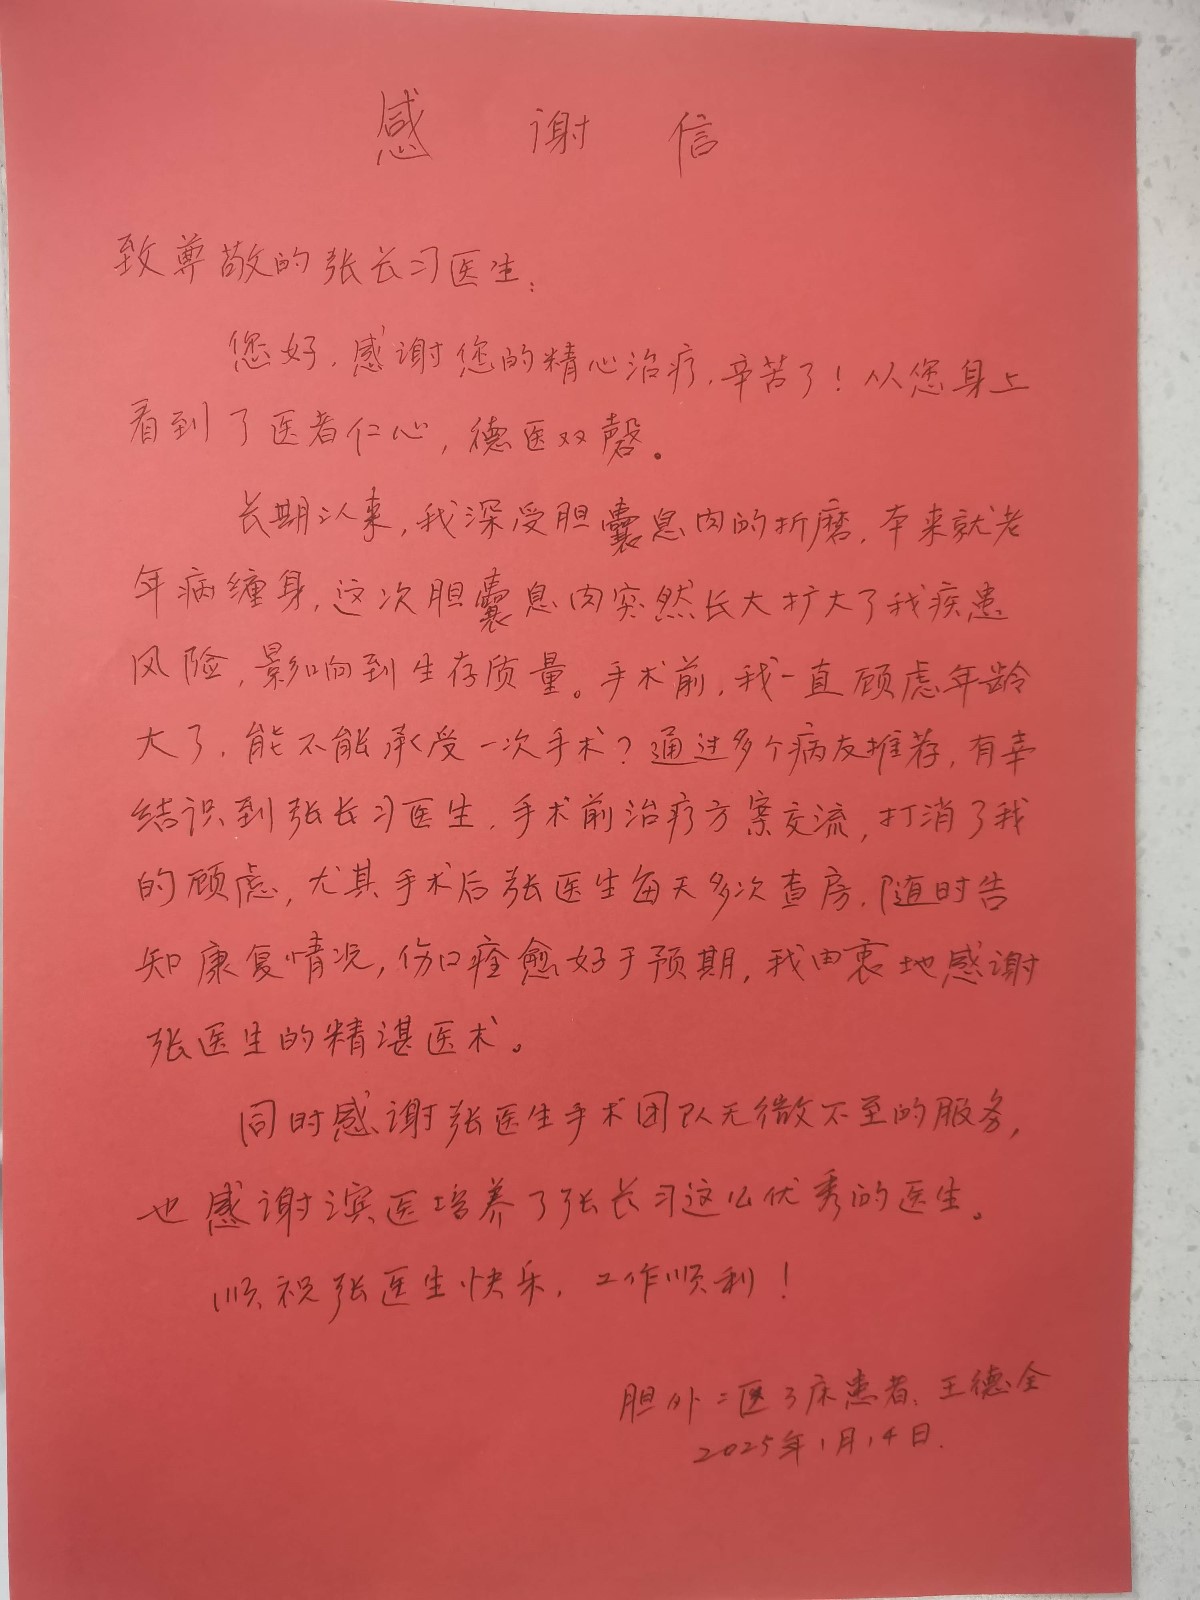 感谢信
致尊敬的张长习医生：
您好，感谢您的精心治疗，辛苦了！从您身上
看到了医者仁心，德医双磬。
长期以来，我深受胆囊息肉的折磨，本来就老
年病缠身，这次胆囊息肉突然长大扩大了我疾患
风险，影响到生存质量。手术前，我一直顾虑年龄
大了，能不能承受一次手术？通过多个病友推荐，有幸
结识到张长习医生，手术前治疗方案交流，打消了我
的顾虑，尤其手术后张医生每天多次查房，随时告
知康复情况，伤口痊愈好于预期，我由衷地感谢
张医生的精湛医术。
同时感谢张医生手术团队无微不至的服务，
也感谢滨医培养了张长习这么优秀的医生。
顺祝张医生快乐，工作顺利！
胆外二区3床患者、王德全
2025年1月14日.